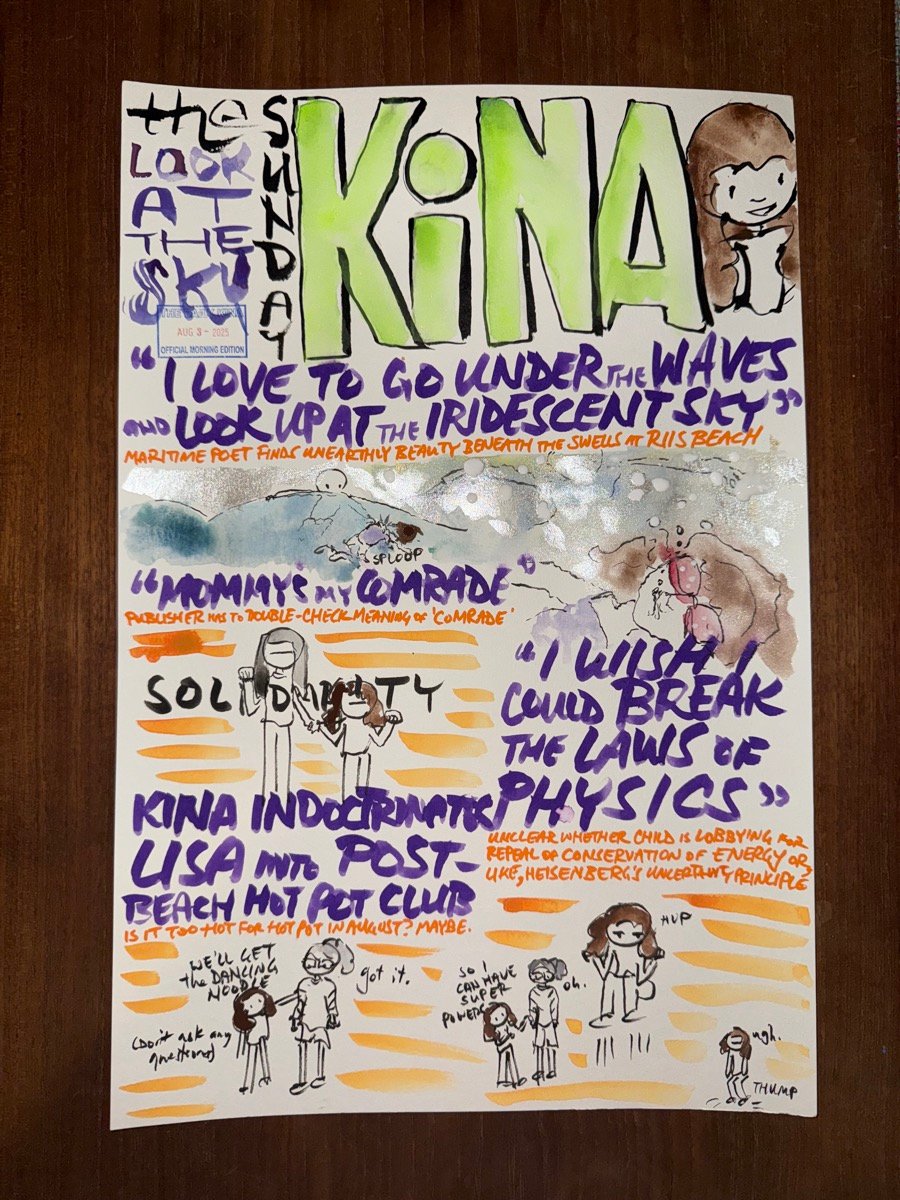 the
LOOK
AT
THE
SKY
SUNDAY
KiNA
THE DAILY KINA
AUG 3 - 2025
OFFICIAL MORNING EDITION
"I LOVE TO GO UNDER THE WAVES
AND LOOK UP AT THE IRIDESCENT SKY"
MARITIME POET FINDS UNEARTHLY BEAUTY BENEATH THE SWELLS AT RIIS BEACH
SPLOOP
"MOMMY'S MY COMRADE"
PUBLISHER HAS TO DOUBLE-CHECK MEANING OF 'COMRADE'
SOLIDARITY
"I WISH I
COULD BREAK
THE LAWS OF
PHYSICS"
UNCLEAR WHETHER CHILD IS LOBBYING FOR
REPEAL OF CONSERVATION OF ENERGY OR,
LIKE, HEISENBERG'S UNCERTAINTY PRINCIPLE
KINA INDOCTRINATES
LISA INTO POST-
BEACH HOT POT CLUB
IS IT TOO HOT FOR HOT POT IN AUGUST? MAYBE.
WE'LL GET
the DANCING
NOODLE
got it.
(Don't ask any
questions)
SO I
CAN HAVE
SUPER
POWERS
oh.
HUP
ugh.
THUMP